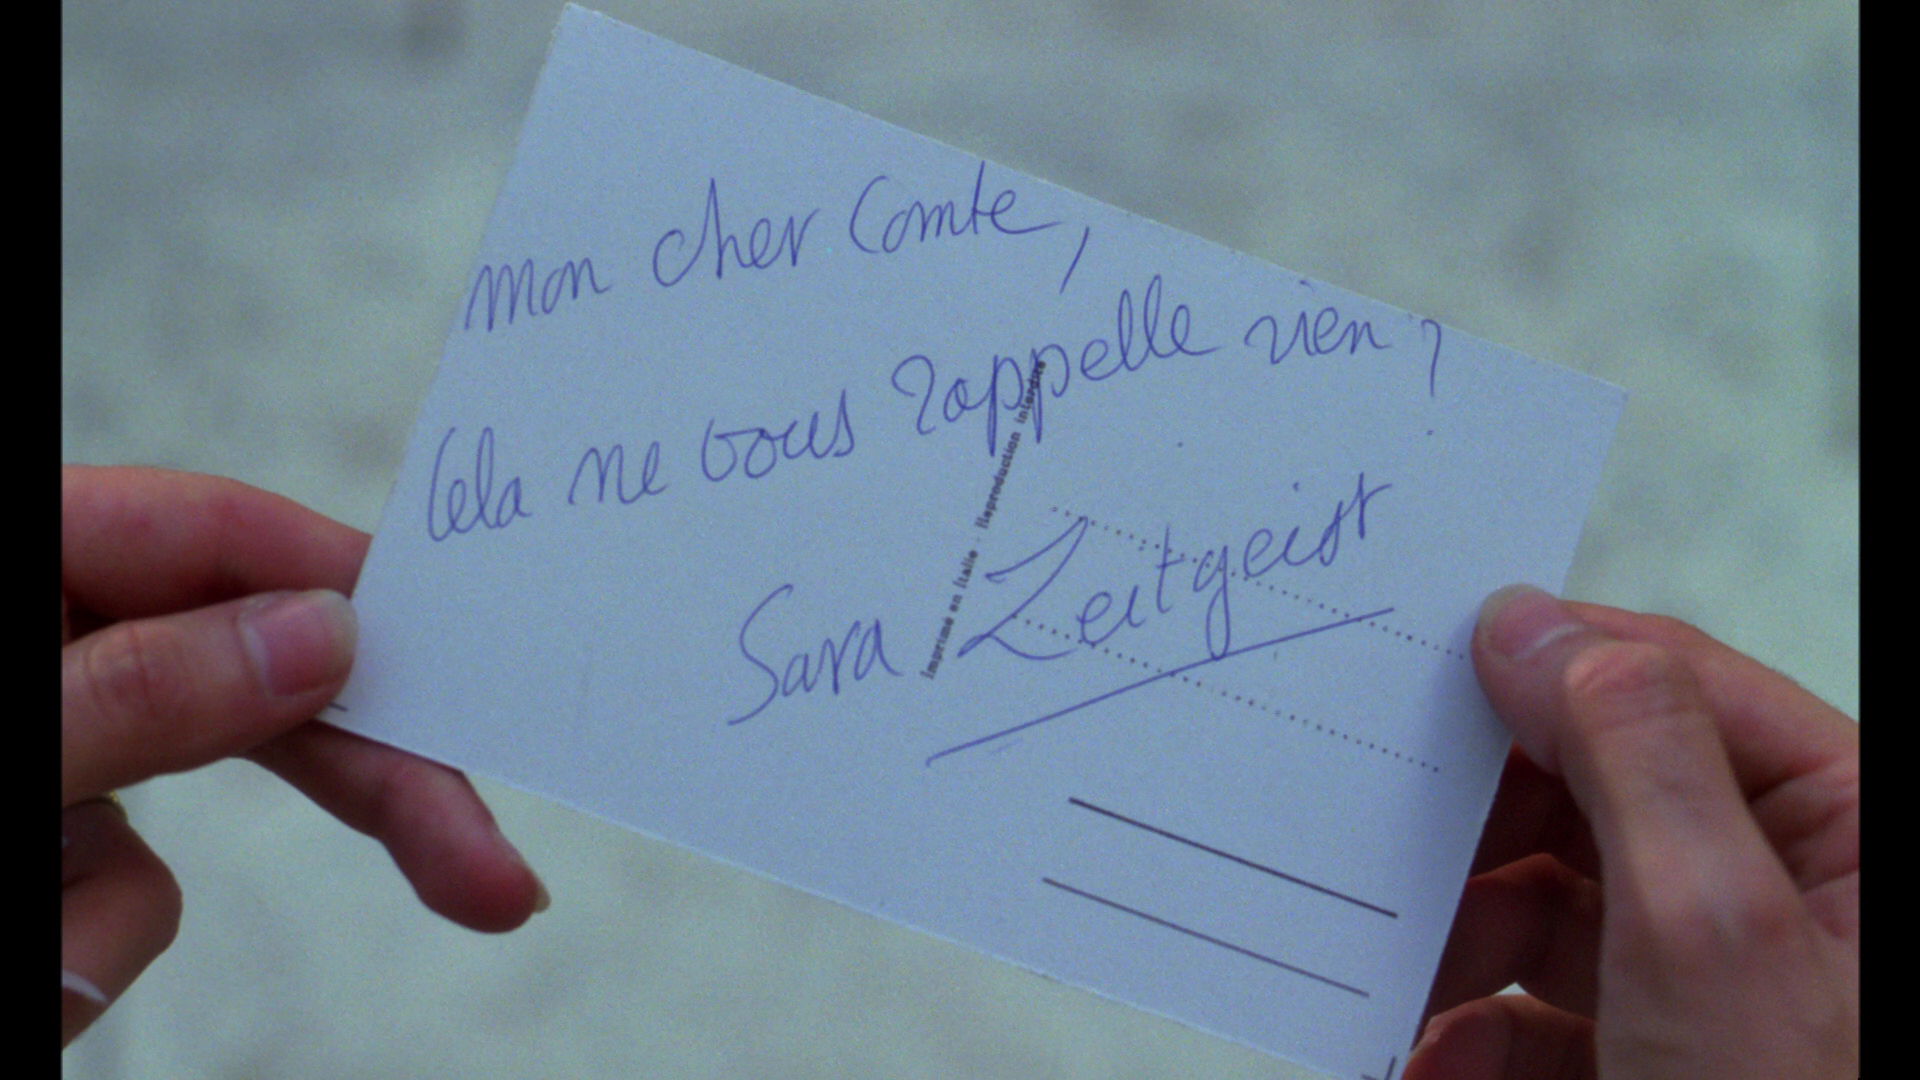 Mon cher Comte,
Cela ne vous rappelle rien ?
Sara Zeitgeist
Imprimé en Italie - Reproduction interdite